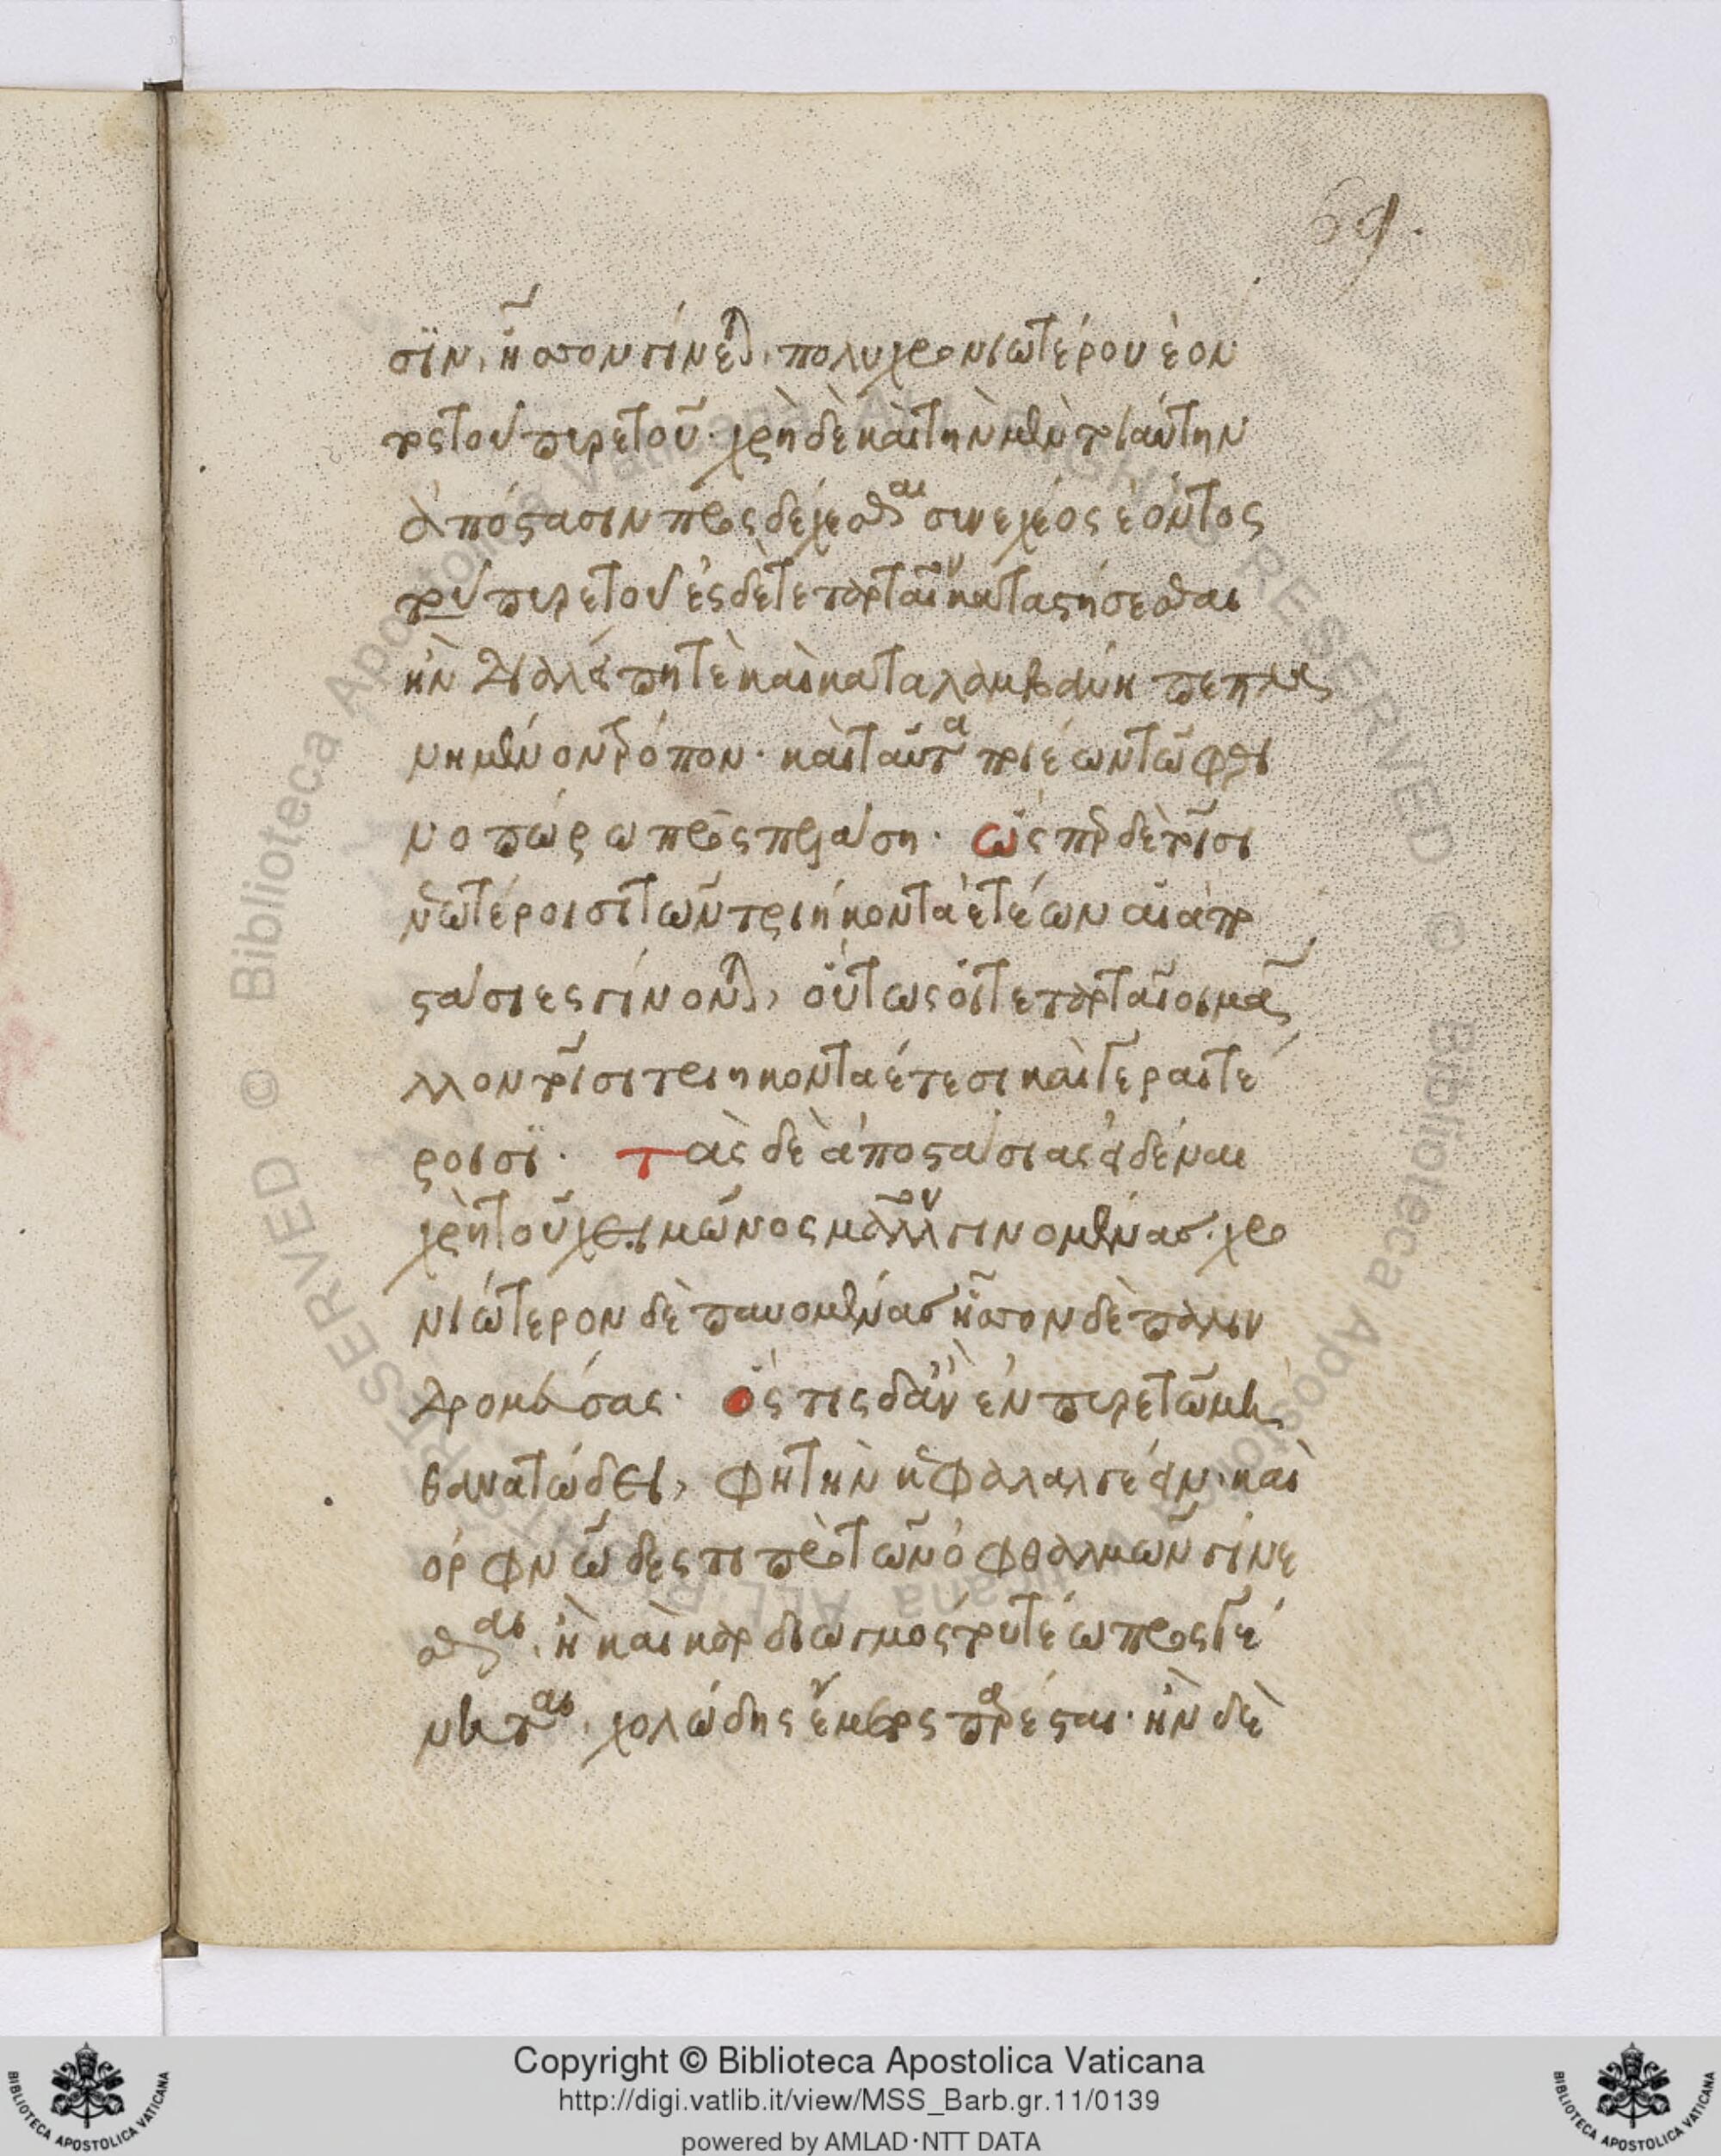 69.
σϊν, ἧσσον γίνεται, πολυχρονιωτέρου ἐόν
τος του πυρετοῦ· χρὴ δὲ καὶ τὴν μὲν τοιαύτην
ἀπόστασιν προσδέχεσθαι συνεχέος ἐόντος
του πυρετοῦ ἐς δὲ τεταρταῖον καταστήσεσθαι
ἢν διαλείπῃ τὲ καὶ καταλαμβάνη πεπλα
νημένον τρόπον· καὶ ταῦτα ποιέων τῶ φθι
νοπώρω προσπελάση· ὥσπερ δὲ τοῖσι
νεωτέροισι τῶν τριήκοντα ἐτέων αἱ ἀπο
στάσιες γίνονται, οὕτως οἱ τεταρταῖοι μᾶ
λλον τοῖσι τριηκονταέτεσι καὶ γεραιτέ
ροισϊ. Τὰς δὲ ἀποστάσιας εἰδέναι
χρὴ τοῦ χειμῶνος μᾶλλον γινομένας· χρο
νιώτερον δὲ παυομένας ἧσσον δὲ παλιν
δρομούσας· Ὅστις δ' ἂν ἐν πυρετῶ μὴ
θανατώδει, φῆ τὴν κεφαλαλγέειν· καὶ
ὀρφνῶδές τι πρὸ τῶν ὀφθαλμῶν γίνε
σθαι, ἢ καὶ καρδιωγμὸς τουτέω προσγέ
νηται, χολώδης ἔμετος παρέσται· ἢν δὲ
Copyright © Biblioteca Apostolica Vaticana
http://digi.vatlib.it/view/MSS_Barb.gr.11/0139
powered by AMLAD·NTT DATA